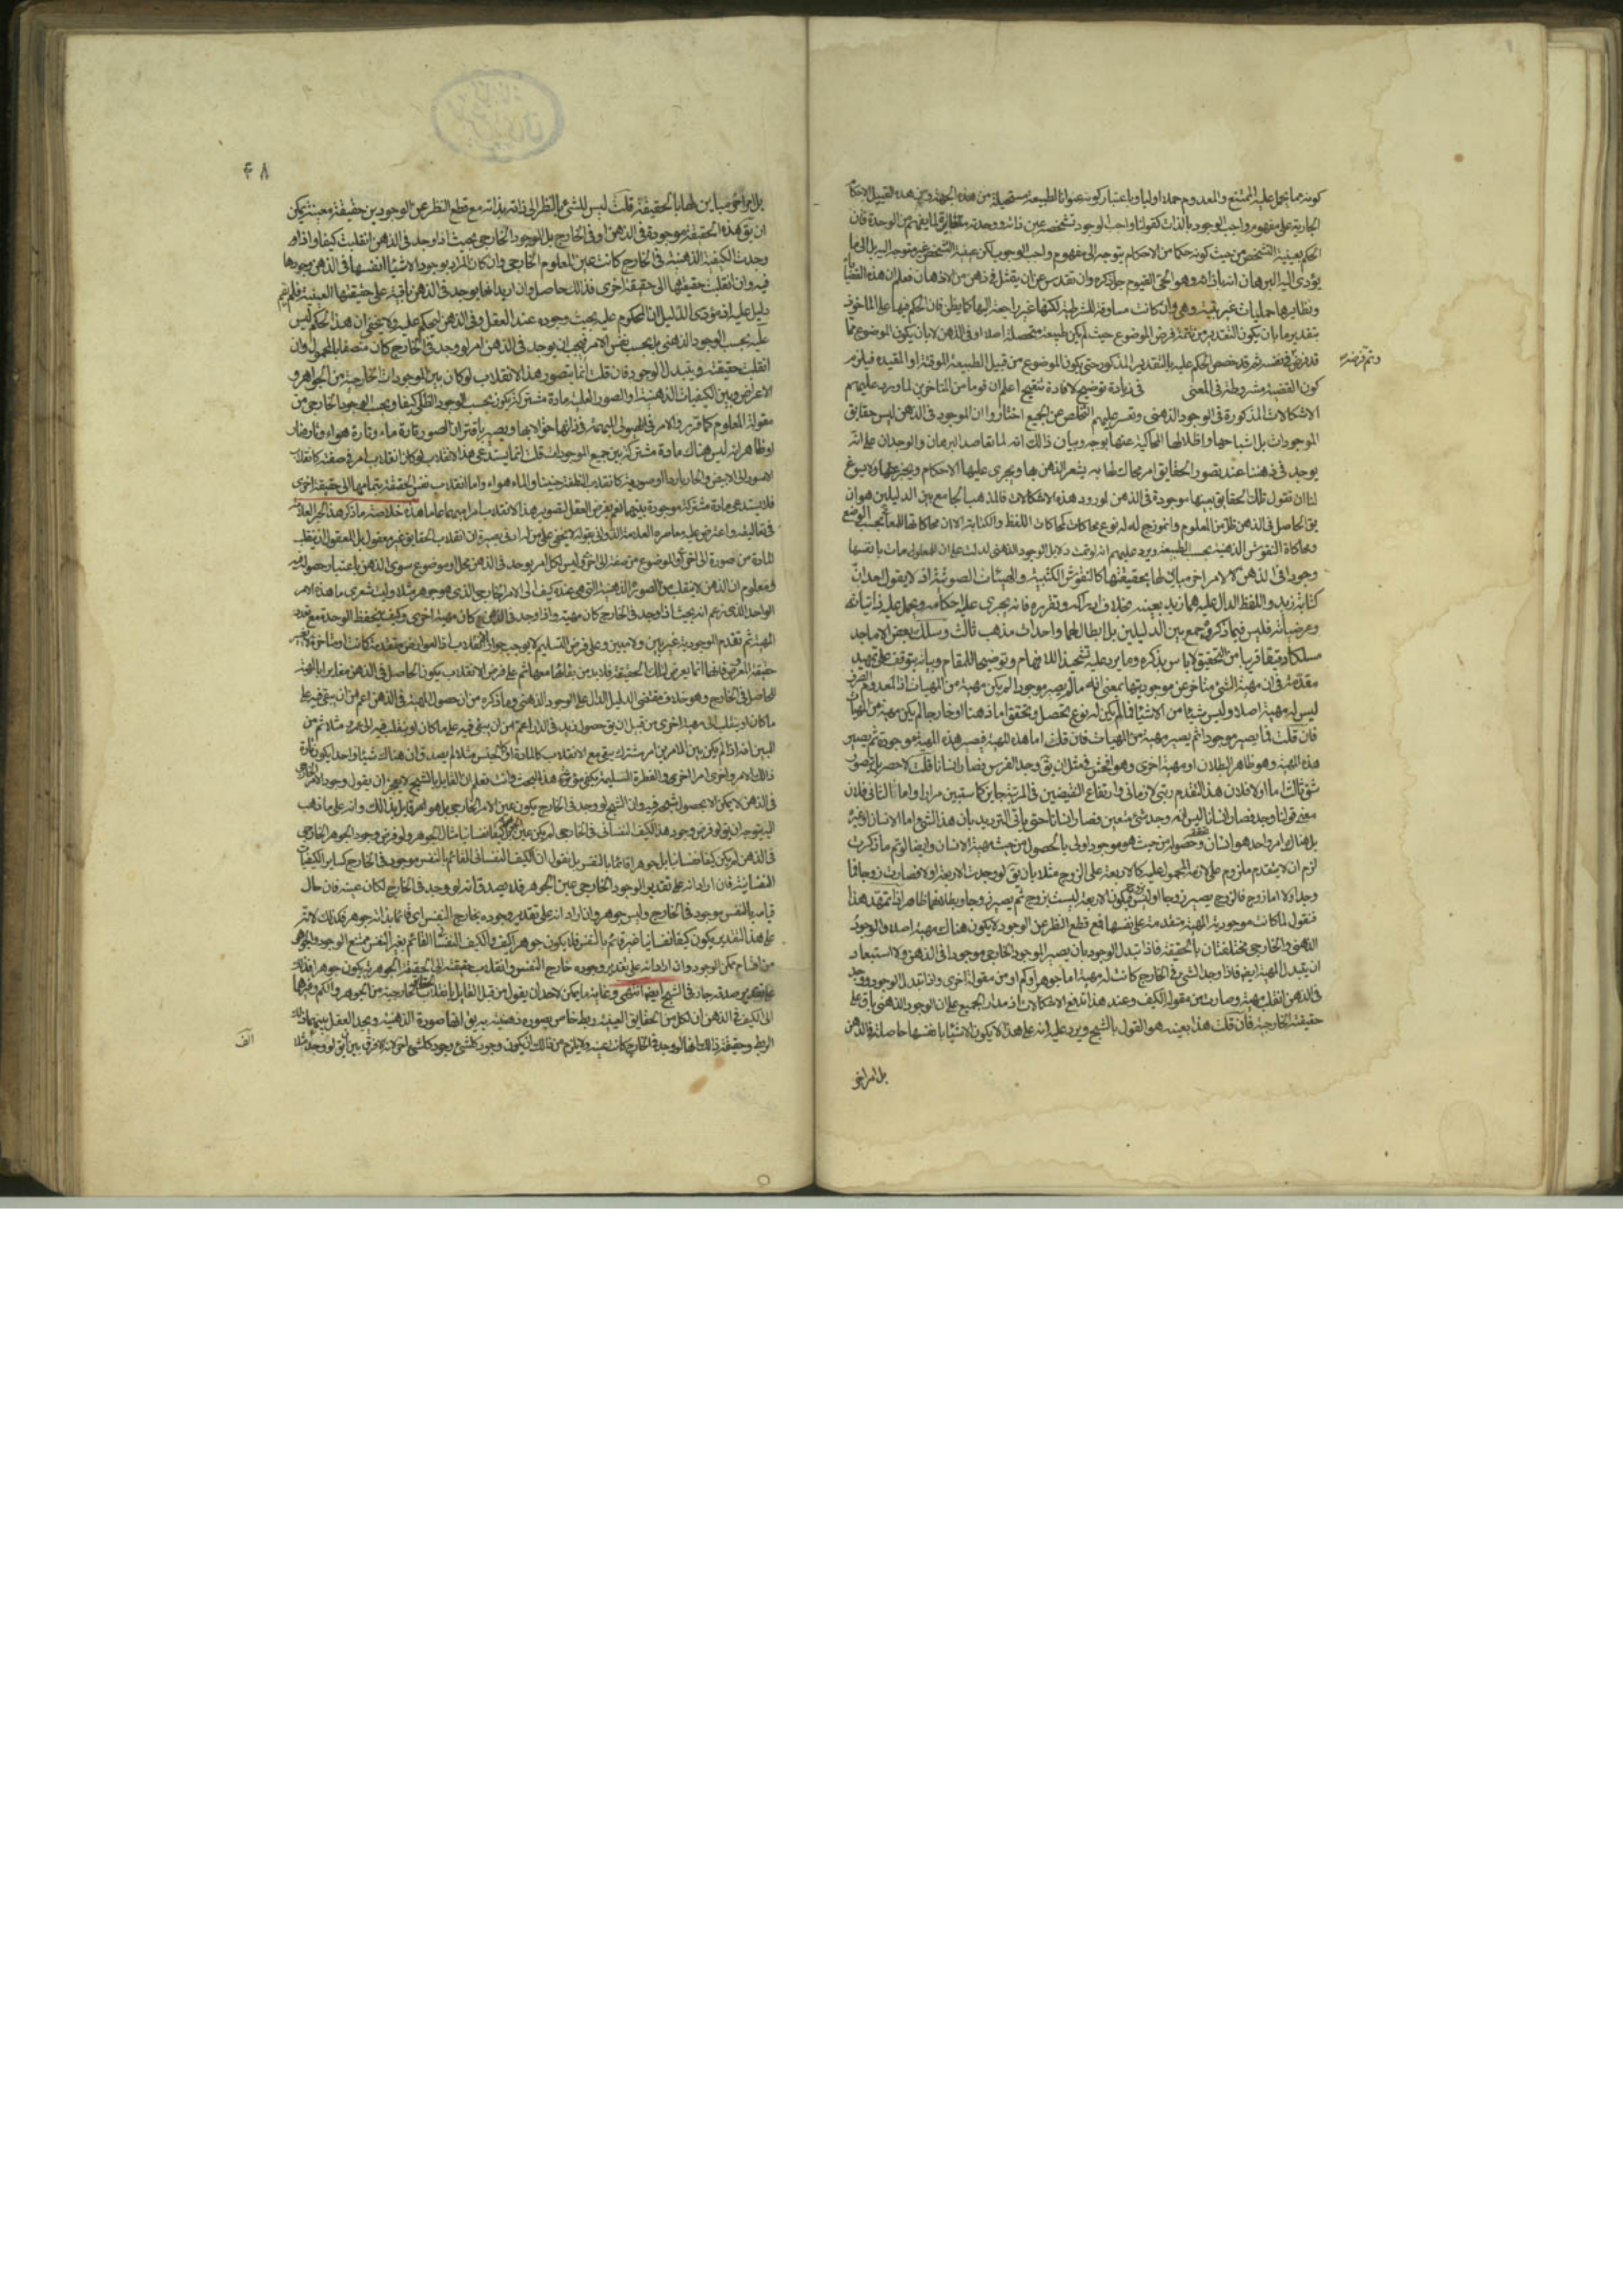 كونه مما يحمل عليه الممتنع والمعدوم حملا اوليا وباعتبار كونه عنوانا لطبيعة مستحيلة من هذه الجهة ومن هذه القبيل الاحكام
الجارية على مفهوم واجب الوجود بالذات كقولنا واجب الوجود تشخصه عين ذاته ووحدته مغايرة لما يفهم من الوحدة فان
الحكم بعينية التشخص من حيث كونه حكما من الاحكام يتوجه الى مفهوم واجب الوجود لكن عينية التشخص غير متوجه اليه بل الى ما
يؤدى اليه البرهان انه بازائه وهو الحى القيوم جل ذكره وان تقدس عن ان يتمثل فى ذهن من الاذهان فعلم ان هذه القضايا
ونظايرها حمليات غير بتية وهى وان كانت مساوقة للشرطية لكنها غير راجعة اليها كما يظن فان الحكم فيها على الماخوذ
بتقدير ما بان يكون التقدير من تتمة فرض الموضوع حيث لم يكن طبيعة متحصلة اصلا او فى الذهن لا بان يكون الموضوع مما
وتم فرضه
قد فرض فى نفسه ثم قد خصص الحكم عليه بالتقدير المذكور حتى يكون الموضوع من قبيل الطبيعة الموقتة او المقيدة فيلزم
كون القضية مشروطة فى المعنى فى زيادة توضيح لافادة تنقيح اعلم ان قوما من المتاخرين لما ورد عليهم
الاشكالات المذكورة فى الوجود الذهنى وتعسر عليهم التخلص عن الجميع اختاروا ان الموجود فى الذهن ليس حقايق
الموجودات بل اشباحها واظلالها المحاكية عنها بوجه وبيان ذالك انه لما تعاضد البرهان والوجدان على انه
يوجد فى ذهننا عند تصور الحقايق امر محاك لها به يشعر الذهن بها ويجرى عليها الاحكام ويخبر عنها ولا يسوغ
لنا ان نقول تلك الحقايق بعينها موجودة فى الذهن لورود هذه الاشكالات فالمذهب الجامع بين الدليلين هو ان
يق الحاصل فى الذهن ظل من المعلوم وانموزج له له نوع محاكات كمحاكات اللفظ والكتابة الا ان محاكاتها للمعانى بحسب الوضع
ومحاكاة النقوش الذهنية بحسب الطبيعة ويرد عليهم انه لو تمت دلايل الوجود الذهنى لدلت على ان للمعلومات بانفسها
وجودا فى الذهن لا لامر اخر مباين لها بحقيقتها كالنقوش الكتبية والهيئات الصوتية اذ لا يقول احد ان
كتابة زيد واللفظ الدال عليه هما زيد بعينه بخلاف ادراكه وتصوره فانه يجرى عليه احكامه ويحمل عليه ذاتياته
وعرضياته فليس فيما ذكروه جمع بين الدليلين بل ابطال لهما واحداث مذهب ثالث وسلك بعض الاماجد
مسلكا دقيقا قريبا من التحقيق لا باس بذكره وما يرد عليه تشحيذا للافهام وتوضيحا للمقام وبيانه يتوقف على تمهيد
مقدمة هى ان مهية الشئ متاخرة عن موجوديتها بمعنى انه ما لم يصر موجودا لم يكن مهية من المهيات اذ المعدوم الصرف
ليس له مهية اصلا وليس شيئا من الاشياء فما لم يكن له نوع تحصل وتحقق اما ذهنا او خارجا لم يكن مهية من المهيات
فان قلت فما يصير موجودا ثم يصير مهية من المهيات فان قلت اما هذه المهية فتصير هذه المهية موجودة ثم يصير
هذه المهية وهو ظاهر البطلان او مهية اخرى وهو افحش فمثل ان يق وجد الفرس فصار انسانا قلت لا حصر بل يتصور
شق ثالث اما اولا فلان هذا التقدم رتبى لا زمانى وارتفاع النقيضين فى المرتبة جايز كما ستبين مرارا واما الثانى فلان
معنى قولنا وجد فصار انسانا ليس انه وجد شئ معين فصار انسانا حتى يأتى الترديد بان هذا الشئ اما الانسان او غيره
بل هناك امر واحد هو انسان وحصوله من حيث هو موجود اولى بالحصول من حيث مهية الانسان وايضا لو تم ما ذكرت
لزم ان لا يتقدم ملزوم على لازمه المحمول عليه كالاربعة على الزوج مثلا بان يق لو وجدت الاربعة اولا فصارت زوجا فاما
وجد اولا اما زوج فالزوج يصير زوجا او ليس بزوج فيكون الاربعة ليست بزوج ثم يصير زوجا وبطلانهما ظاهر اذا تمهد هذا
فنقول لما كانت موجودية المهية متقدمة على نفسها فمع قطع النظر عن الوجود لا يكون هناك مهية اصلا والوجود
الذهنى والخارجى مختلفتان بالحقيقة فاذا تبدل الوجود بان يصير الموجود الخارجى موجودا فى الذهن ولا استبعاد
ان يتبدل المهية ايضا فاذا وجد الشئ فى الخارج كانت له مهية اما جوهر او كم او من مقولة اخرى واذا تبدل الوجود ووجد
فى الذهن انقلب مهيته وصارت من مقولة الكيف وعند هذا تندفع الاشكالات اذ مدار الجميع على ان الوجود الذهنى باق على
حقيقته الخارجية فان قلت هذا بعينه هو القول بالشبح ويرد عليه انه على هذا لا يكون الاشياء بانفسها حاصلة فى الذهن
بل امر اخر
٤٨
بل امر اخر مباين لها بالحقيقة قلت ليس للشئ بالنظر الى ذاته بذاته مع قطع النظر عن الوجودين حقيقة معينة يمكن
ان يق هذه الحقيقة موجودة فى الذهن او فى الخارج بل الموجود الخارجى بحيث اذا وجد فى الذهن انقلبت كيفا واذا
وجدت الكيفية الذهنية فى الخارج كانت عين المعلوم الخارجى فان كان المراد بوجود الاشياء انفسها فى الذهن وجودها
فيه وان انقلبت حقيقتها الى حقيقة اخرى فذالك حاصل وان اريد انها يوجد فى الذهن باقية على حقيقتها العينية فلم يقم
دليل عليه اذ مؤدى الدليل ان المحكوم عليه يجب وجوده عند العقل وفى الذهن ليحكم عليه ولا يخفى ان هذا الحكم ليس
عليه بحسب الوجود الذهنى بل بحسب نفس الامر فيجب ان يوجد فى الذهن امر لو وجد فى الخارج كان متصفا بالمحمول وان
انقلبت حقيقته وتتبدل الوجود فان قلت انما يتصور هذا الانقلاب لو كان بين الموجودات الخارجية من الجواهر و
الاعراض وبين الكيفيات الذهنية او الصور العلمية مادة مشتركة يكون بحسب الوجود الظلى كيفا وبحسب الوجود الخارجى من
مقولة المعلوم كما قرروا الامر فى الهيولى المبهمة فى ذاتها حق الابهام ويصير باقتران الصور تارة ماء وتارة هواء وتارة نار
وظاهر انه ليس هناك مادة مشتركة بين جميع الموجودات قلت انما يستدعى هذا الانقلاب لو كان انقلاب امر فى صفته كانقلاب
الاسود الى الابيض والحار باردا او صورته كانقلاب النطفة جنينا والماء هواء واما انقلاب نفس الحقيقة بتمامها الى حقيقة اخرى
فلا يستدعى مادة مشتركة موجودة بينهما نعم يفرض العقل لتصوير هذا الانقلاب امرا مبهما عاما هذه خلاصة ما ذكره هذا الحبر العلامة
فى تعاليقه واعترض عليه معاصره العلامة الدوانى بقوله لا يخفى على من له ادنى بصيرة ان انقلاب الحقايق غير معقول بل المعقول ان ينقلب
المادة من صورة الى اخرى او الموضوع من صفة الى اخرى وليس لكل امر يوجد فى الذهن محل او موضوع سوى الذهن باعتبار حصوله فيه
ومعلوم ان الذهن لا ينقلب من الصورة الذهنية التى هى عنده كيف الى الامر الخارجى الذى هو جوهر مثلا وليت شعرى ما هذا الامر
الواحد الذى زعم انه بحيث اذا وجد فى الخارج كان مهية واذا وجد فى الذهن كان مهية اخرى وكيف ينحفظ الوحدة مع تعدد
المهية ثم تقدم الموجودية غير بين ولا مبين وعلى فرض التسليم لا يوجب جواز الانقلاب اذ العوارض متقدمة كانت او متاخرة لا يغير
حقيقة المعروض فانها انما يعرض لتلك الحقيقة فلا بد من بقائها معها ثم على فرض الانقلاب يكون الحاصل فى الذهن مغايرا بالمهية
للحاصل فى الخارج وهو خلاف مقتضى الدليل الدال على الوجود الذهنى وما ذكره من ان حصول المهية فى الذهن اعم من ان يبقى فيه على
ما كان او ينقلب الى مهية اخرى من قبيل ان يق حصول زيد فى الدار اعم من ان يبقى فيه على ما كان او ينقلب فيه الى عمرو مثلا ثم من
البين انه اذا لم يكن بين الامرين امر مشترك يبقى مع الانقلاب كالمادة او كالجنس مثلا لم يصدق ان هناك شيئا واحدا يكون تارة
ذالك الامر واخرى امرا اخر والفطرة السليمة يكفى مؤنة هذا البحث وانت تعلم ان القايل بالشبح لا يعجز ان يقول وجود الامر الخارجى
فى الذهن لا يمكن الا بحصول شبحه فيه وان الشبح لو وجد فى الخارج يكون عين الامر الخارجى بل هو قائل بذالك وانه على ما ذهب
اليه يتوجه ان يق لو فرض وجود هذا الكيف النفسانى فى الخارج لم يكن عين الجوهر بل كيفا نفسانيا مثال الجوهر ولو فرض وجود الجوهر الخارجى
فى الذهن لم يكن كيفا نفسانيا بل جوهرا قائما بالنفس بل نقول ان الكيف النفسانى القائم بالنفس موجود فى الخارج كساير الكيفيات
النفسانية فان اراد انه على تقدير الوجود الخارجى عين الجوهر فلا يصدق انه لو وجد فى الخارج لكان عينه فان حال
قيامه بالنفس موجود فى الخارج وليس جوهر وان اراد انه على تقدير وجوده بخارج النفس اى قائما بذاته جوهر فكذلك لانه
على هذا التقدير يكون كيفا نفسانيا غير قائم بالنفس فلا يكون جوهرا لكيف والكيف النفسانى القائم بغير النفس ممتنع الوجود والجوهر
من اقسام ممكن الوجود وان اراد انه على تقدير وجوده خارج النفس وانقلاب حقيقته الى الحقيقة الجوهرية يكون جوهرا فذلك
على تقدير صدقه جار فى الشبح ايضا انتهى وغاية ما يمكن لاحد ان يقول من قبل القايل بانقلاب الحقايق الخارجية من الجوهر والكم وغيرها
الى الكيف فى الذهن ان لكل من الحقايق العينية ربط خاص بصورة ذهنية به يق انها صورة الذهنية ويجد العقل بينهما ذلك
الربط وحقيقة ذالك انها لو وجدت فى الخارج كانت عينه ولا يلزم من ذالك ان يكون وجود كلشئ وجود كلشئ اخر لانه لا فرق بين ان يق لو وجد مثلا
الف